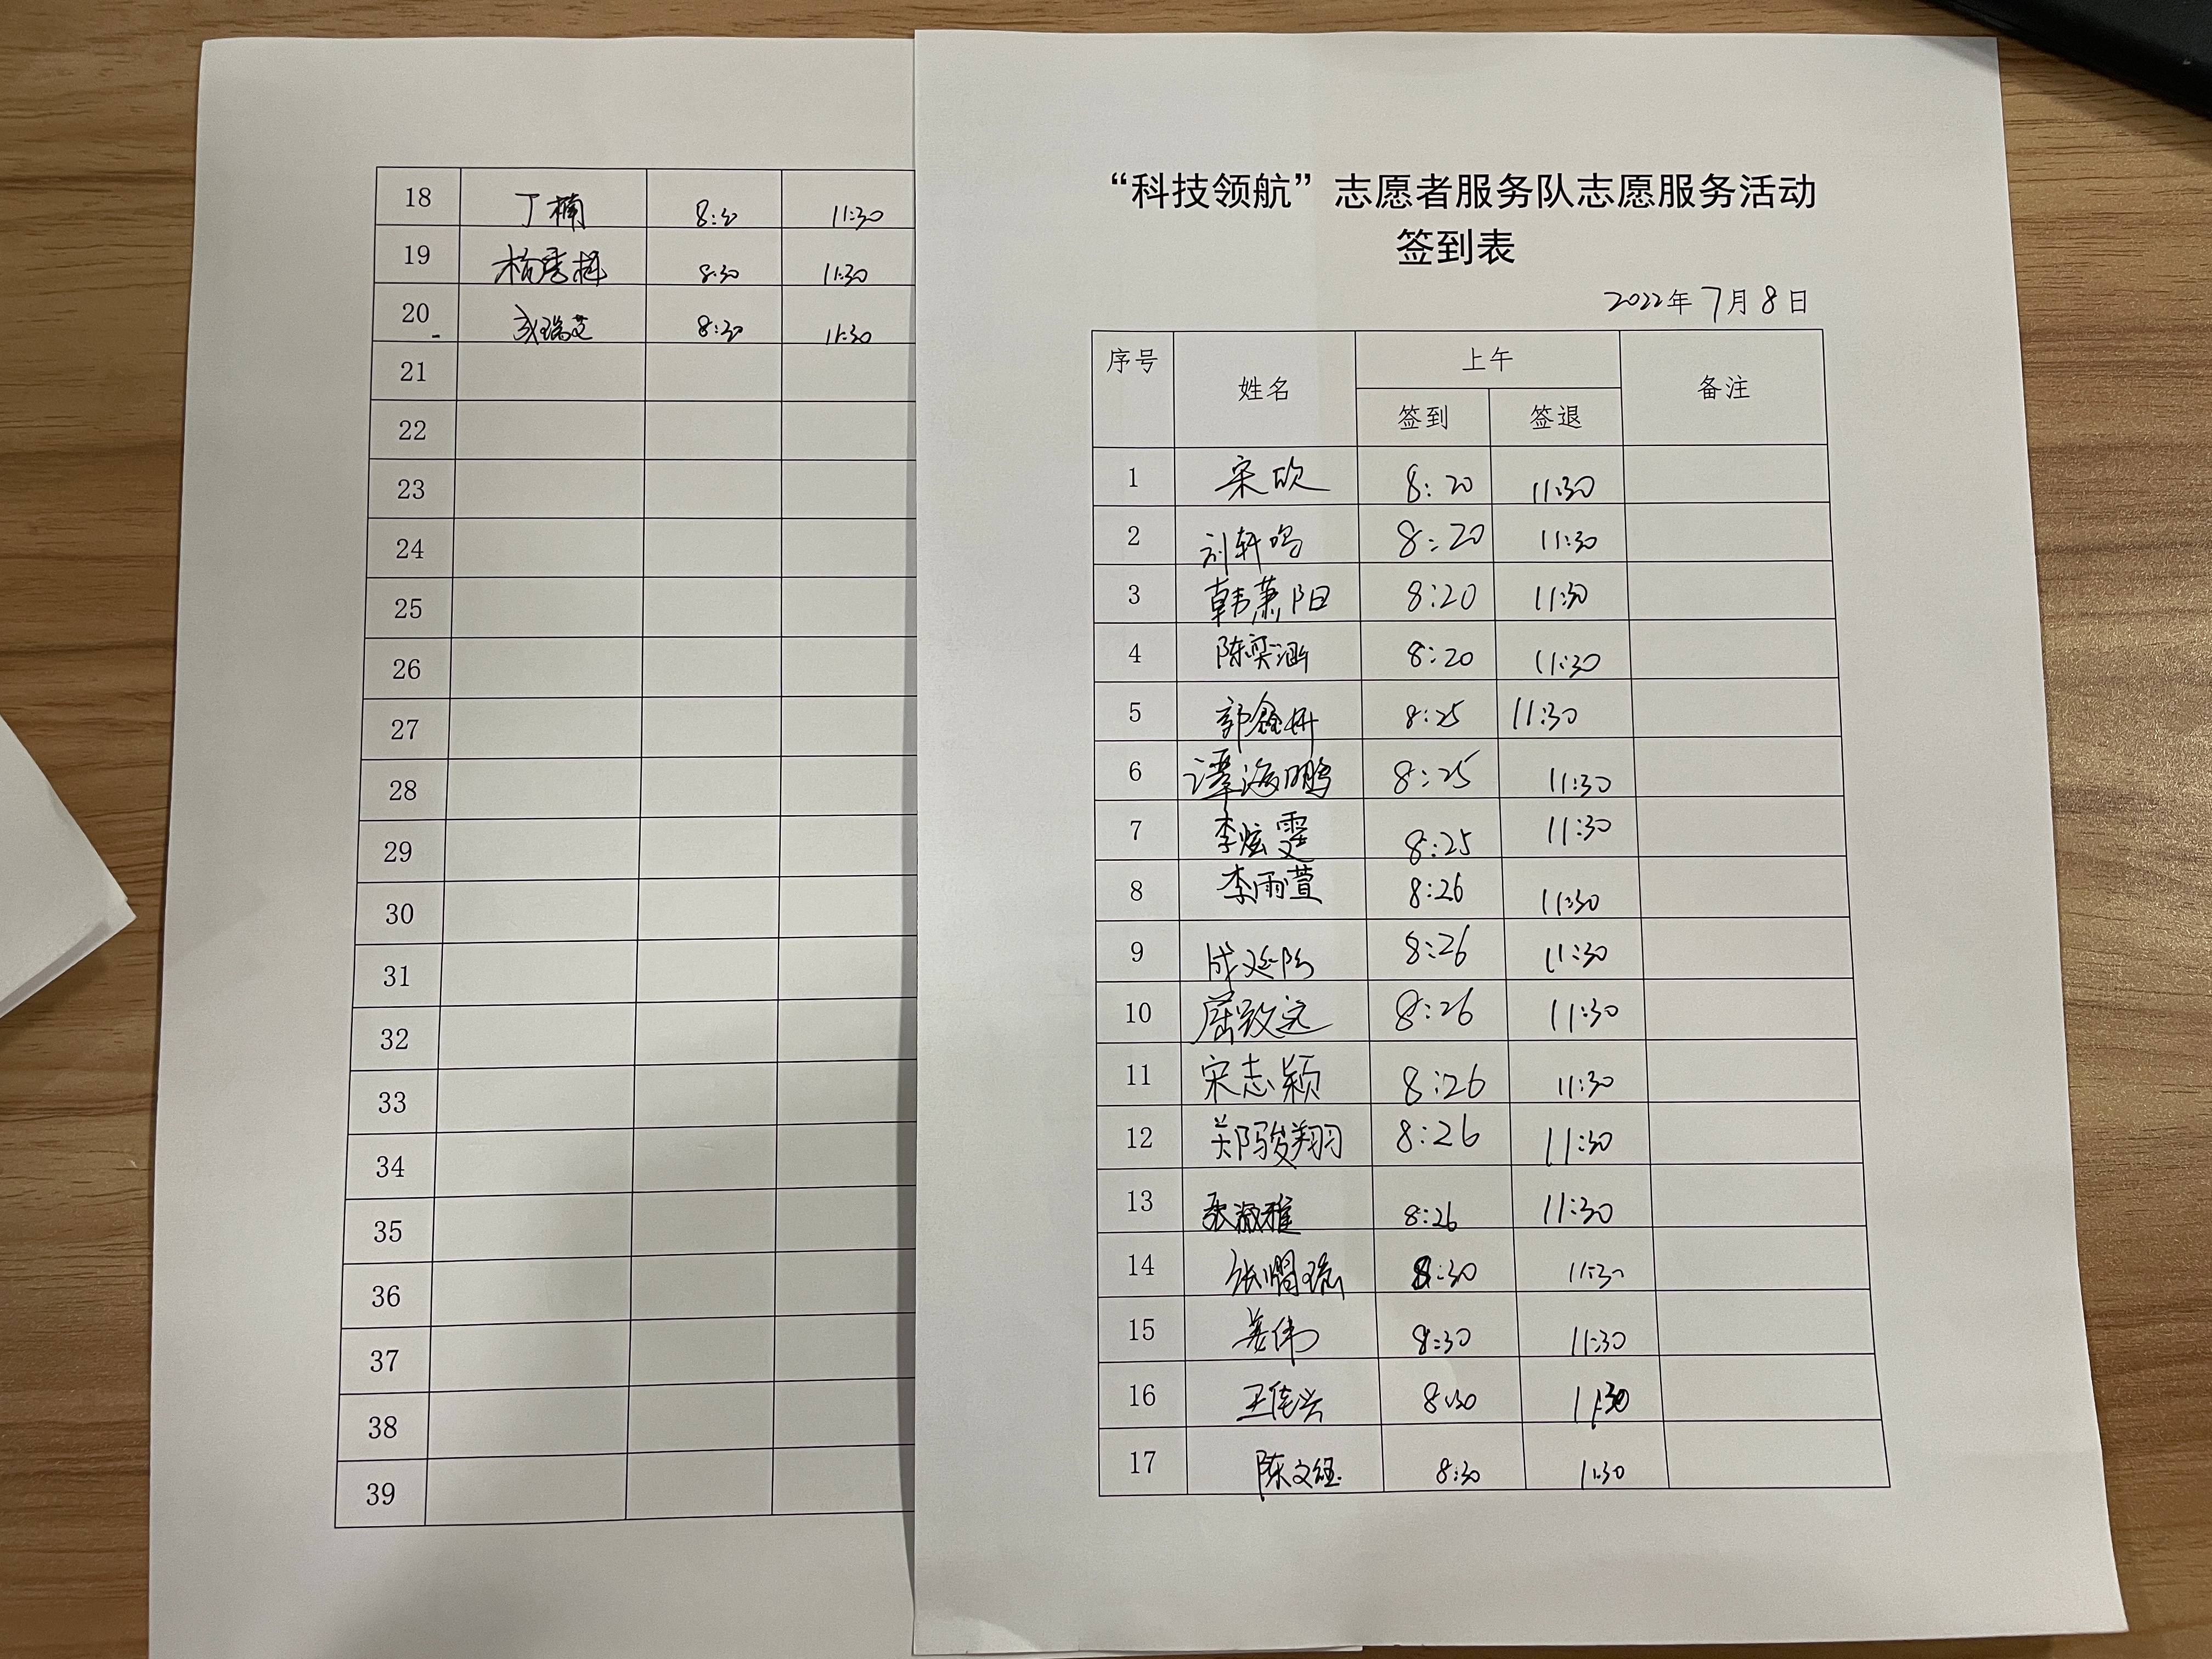 “科技领航”志愿者服务队志愿服务活动
签到表
2022年7月8日
序号 姓名 上午 备注
签到 签退
1 宋欣 8:20 11:30
2 刘轩鸣 8:20 11:30
3 韩萧阳 8:20 11:30
4 陈奕涵 8:20 11:30
5 郭鑫妍 8:25 11:30
6 谭海鹏 8:25 11:30
7 李炫雯 8:25 11:30
8 李雨萱 8:26 11:30
9 8:26 11:30
10 屈致远 8:26 11:30
11 宋志颖 8:26 11:30
12 郑骏翔 8:26 11:30
13 张淑雅 8:26 11:30
14 8:30 11:30
15 姜伟 8:30 11:30
16 王佳兴 8:30 11:30
17 8:30 11:30
18 丁楠 8:30 11:30
19 8:30 11:30
20 8:30 11:30
21
22
23
24
25
26
27
28
29
30
31
32
33
34
35
36
37
38
39